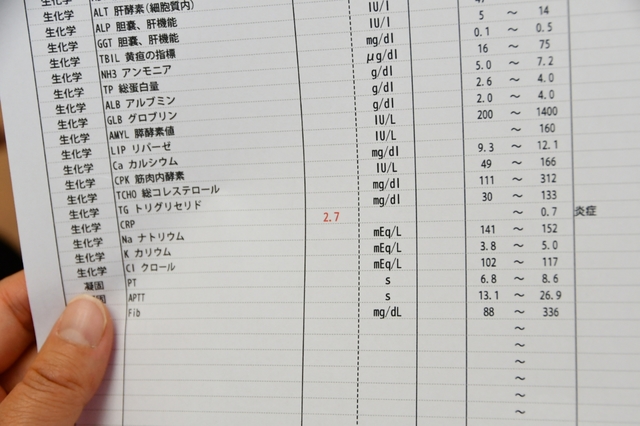 生化学 ALT 肝酵素(細胞質内)
生化学 ALP 胆嚢、肝機能 IU/l
生化学 GGT 胆嚢、肝機能 IU/l 5 ～ 14
生化学 TBIL 黄疸の指標 mg/dl 0.1 ～ 0.5
生化学 NH3 アンモニア μg/dl 16 ～ 75
生化学 TP 総蛋白量 g/dl 5.0 ～ 7.2
生化学 ALB アルブミン g/dl 2.6 ～ 4.0
生化学 GLB グロブリン g/dl 2.0 ～ 4.0
生化学 AMYL 膵酵素値 IU/L 200 ～ 1400
生化学 LIP リパーゼ IU/L ～ 160
生化学 Ca カルシウム mg/dl 9.3 ～ 12.1
生化学 CPK 筋肉内酵素 IU/L 49 ～ 166
生化学 TCHO 総コレステロール mg/dl 111 ～ 312
生化学 TG トリグリセリド mg/dl 30 ～ 133
生化学 CRP 2.7 ～ 0.7 炎症
生化学 Na ナトリウム mEq/L 141 ～ 152
生化学 K カリウム mEq/L 3.8 ～ 5.0
生化学 Cl クロール mEq/L 102 ～ 117
凝固 PT s 6.8 ～ 8.6
固 APTT s 13.1 ～ 26.9
Fib mg/dL 88 ～ 336
～
～
～
～
～
～